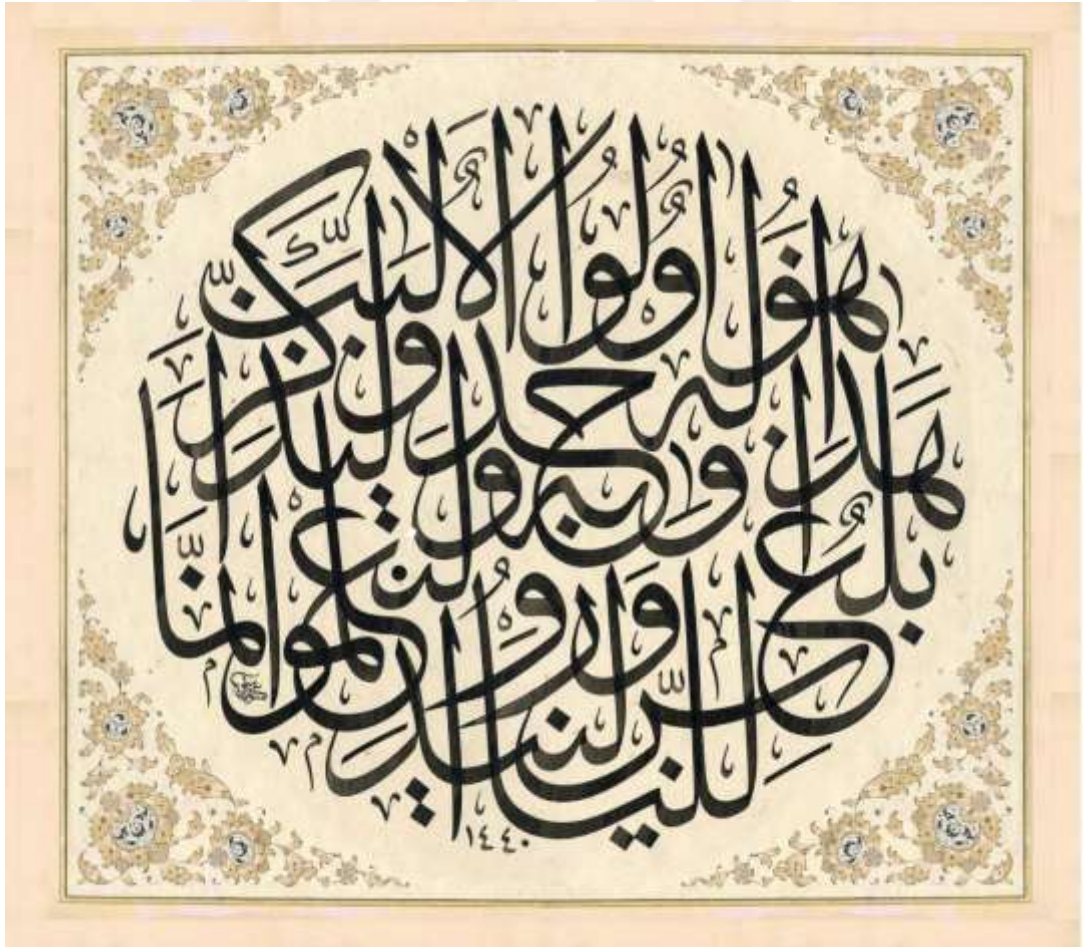 هذا بلاغ للناس ولينذروا به وليعلموا أنما هو إله واحد وليذكر أولوا الألباب
١٤٤٠